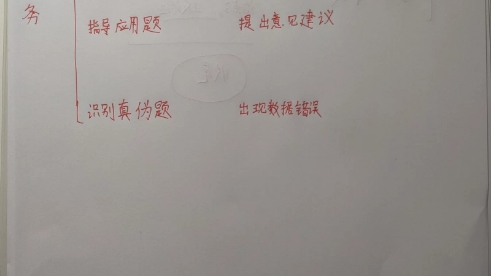 务
指导应用题 提出意见建议
识别真伪题 出现数据错误